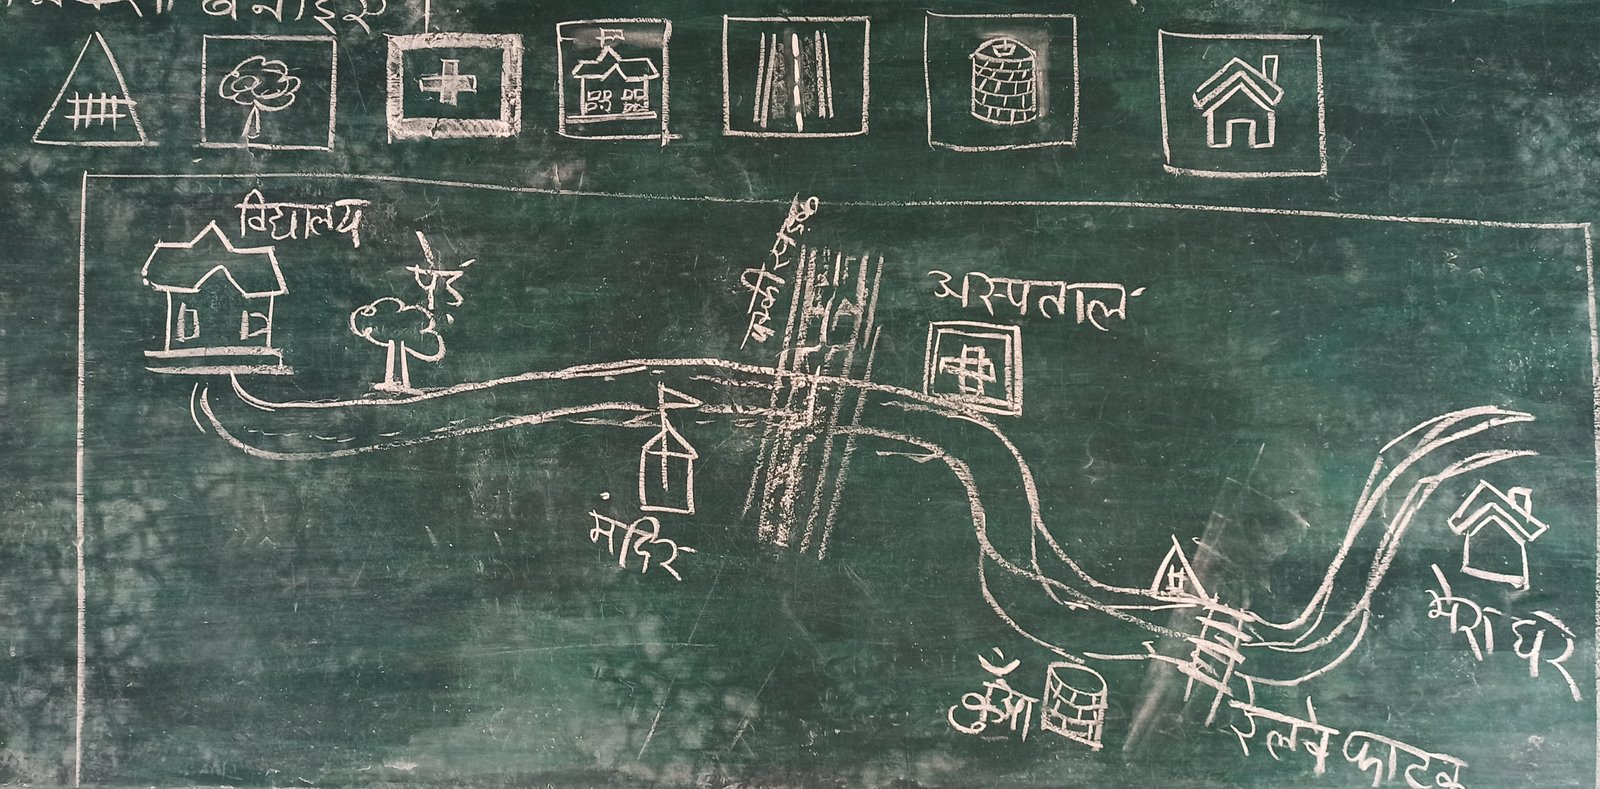 बनाइए।
विद्यालय
पेड़
पक्की सड़क
अस्पताल
मंदिर
मेरा घर
कुँआ
रेलवे फाटक